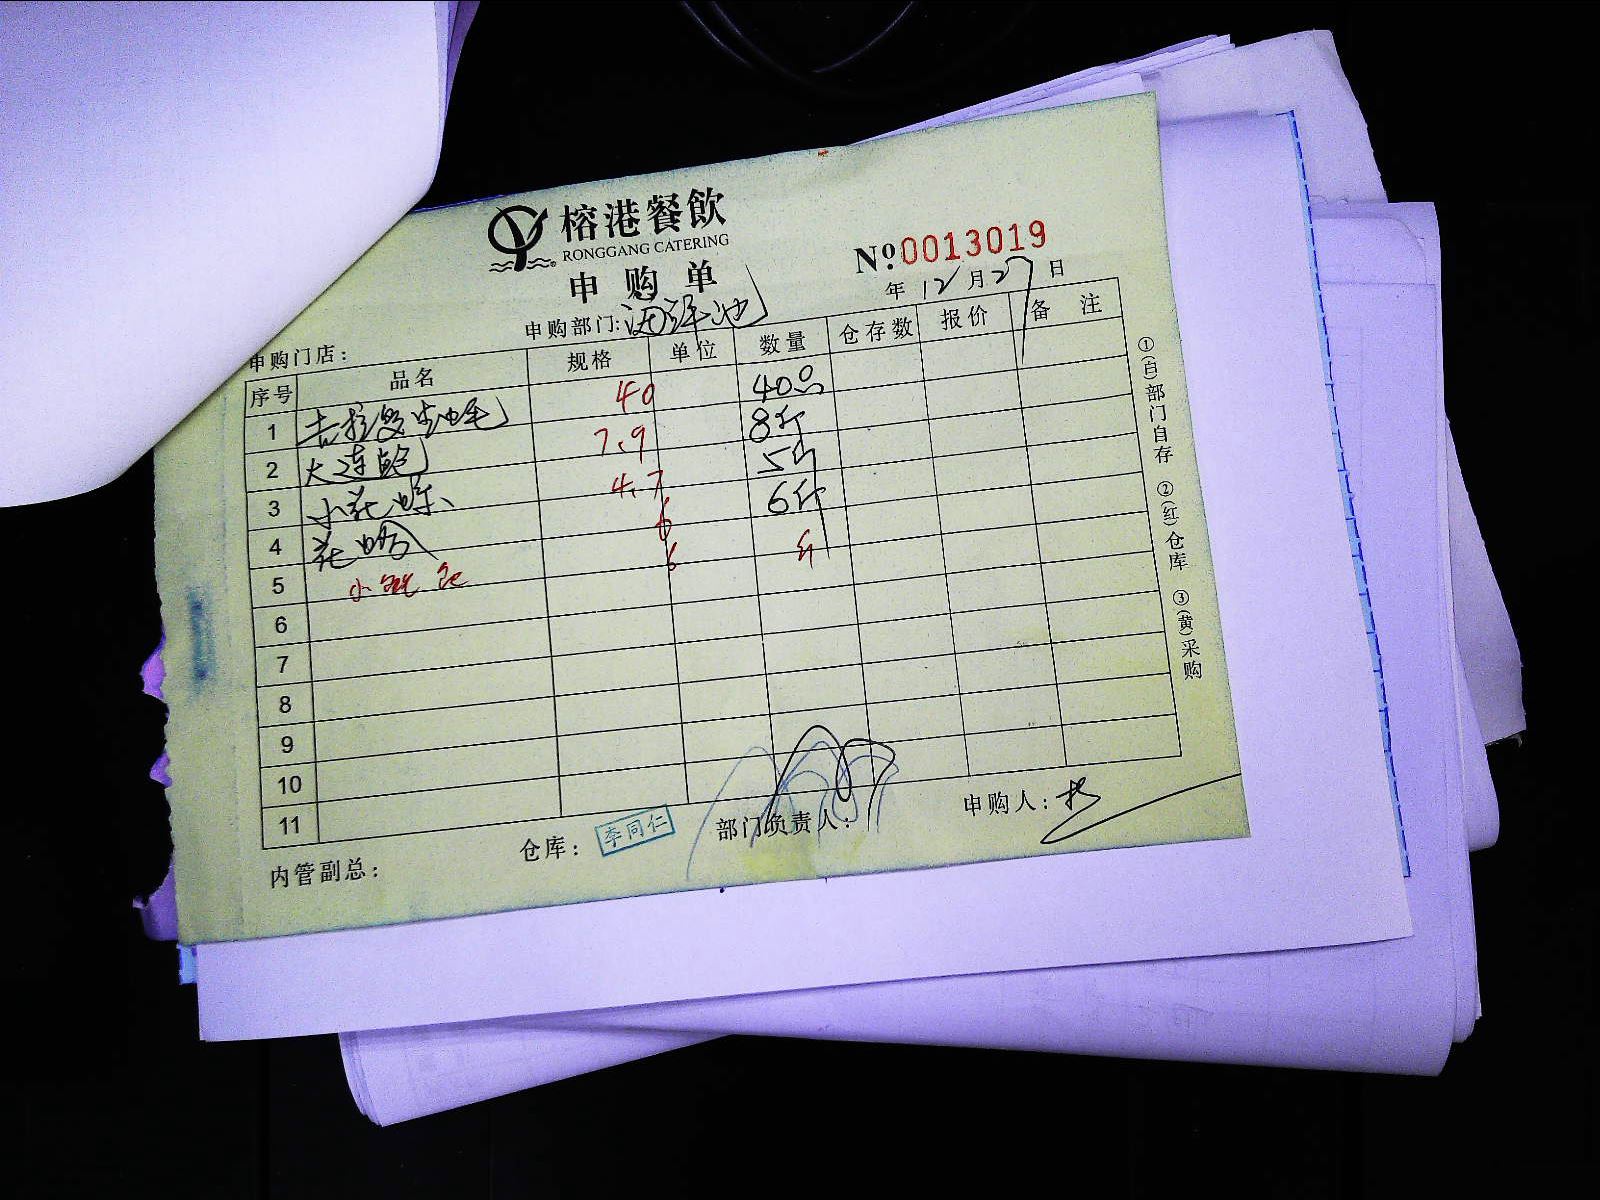 榕港餐飲
RONGGANG CATERING
申购单
Nº0013019
年 12 月 27 日
申购部门:海鲜池
申购门店:
序号 品名 规格 单位 数量 仓存数 报价 备注
1 吉拉多生蚝 40 40只
2 大连鲍 7.9 8斤
3 小花螺 4.7 5斤
4 花蛤 6 6斤
5 小 6 斤
6
7
8
9
10
11
内管副总:
仓库: 李同仁
部门负责人:
申购人:
①(白)部门自存 ②(红)仓库 ③(黄)采购